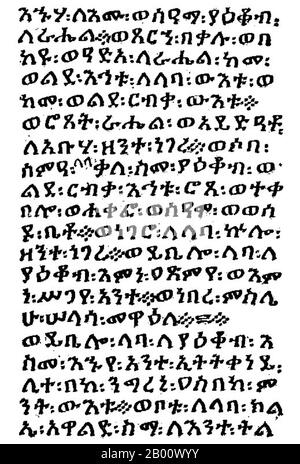 እኁሃ፡ለእሙ፡ወሰዐማ፡ያዕቆብ፡
ለራሔል፨ወጸርኀ፡በቃሉ፡ወበ
ከየ፡ወዐይድዓ፡ለራሔል፡ከመ፡
ወልደ፡እኅቱ፡ለላባ፡ውእቱ፡ወ
ከመ፡ወልደ፡ርብቃ፡ውእቱ፨
ወሮጸት፡ራሔል፡ወአይድዐቶ፡
ለአቡሃ፡ዘንተ፡ነገረ፡ወሶበ፡
ሰምዐ፡ላባ፡ቃለ፡ስመ፡ያዕቆብ፡ወ
ልደ፡ርብቃ፡እኅቱ፡ሮጸ፡ወተቀ
በሎ፡ወሐቀፎ፡ወሰዐሞ፡ወወሰ
ዶ፡ቤቶ፨ወነገሮ፡ለላባ፡ኵሎ፡
ዘንተ፡ነገረ፨ወይቤሎ፡ላባ፡ለ
ያዕቆብ፡እምነ፡ዐጽምየ፡ወእም
ነ፡ሥጋየ፡አንተ፨ወነበረ፡ምስሌ
ሁ፡ሠላሰ፡መዋዕለ፨
ወይቤሎ፡ላባ፡ለያዕቆብ፡እ
ስመ፡እኁየ፡አንተ፡ኢትትቀነይ፡
ሊተ፡በከ፡ንግረኒ፡ዐስበከ፡ም
ንት፡ውእቱ፨ወቦቱ፡ለላባ፡ክል
ኤ፡አዋልድ፡ስማ፡ለእንተ፡ትል